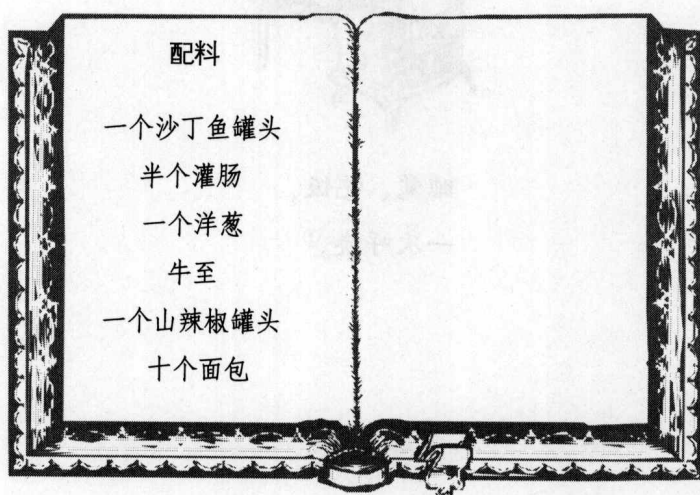 配料
一个沙丁鱼罐头
半个灌肠
一个洋葱
牛至
一个山辣椒罐头
十个面包